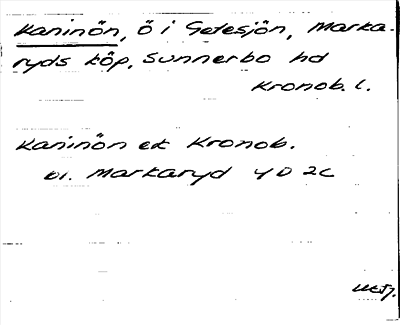 Kaninön, ö i Getesjön, Marka-
ryds köp, Sunnerbo hd
Kronob. l.
Kaninön ek Kronob.
bl. Markaryd 4D 2c